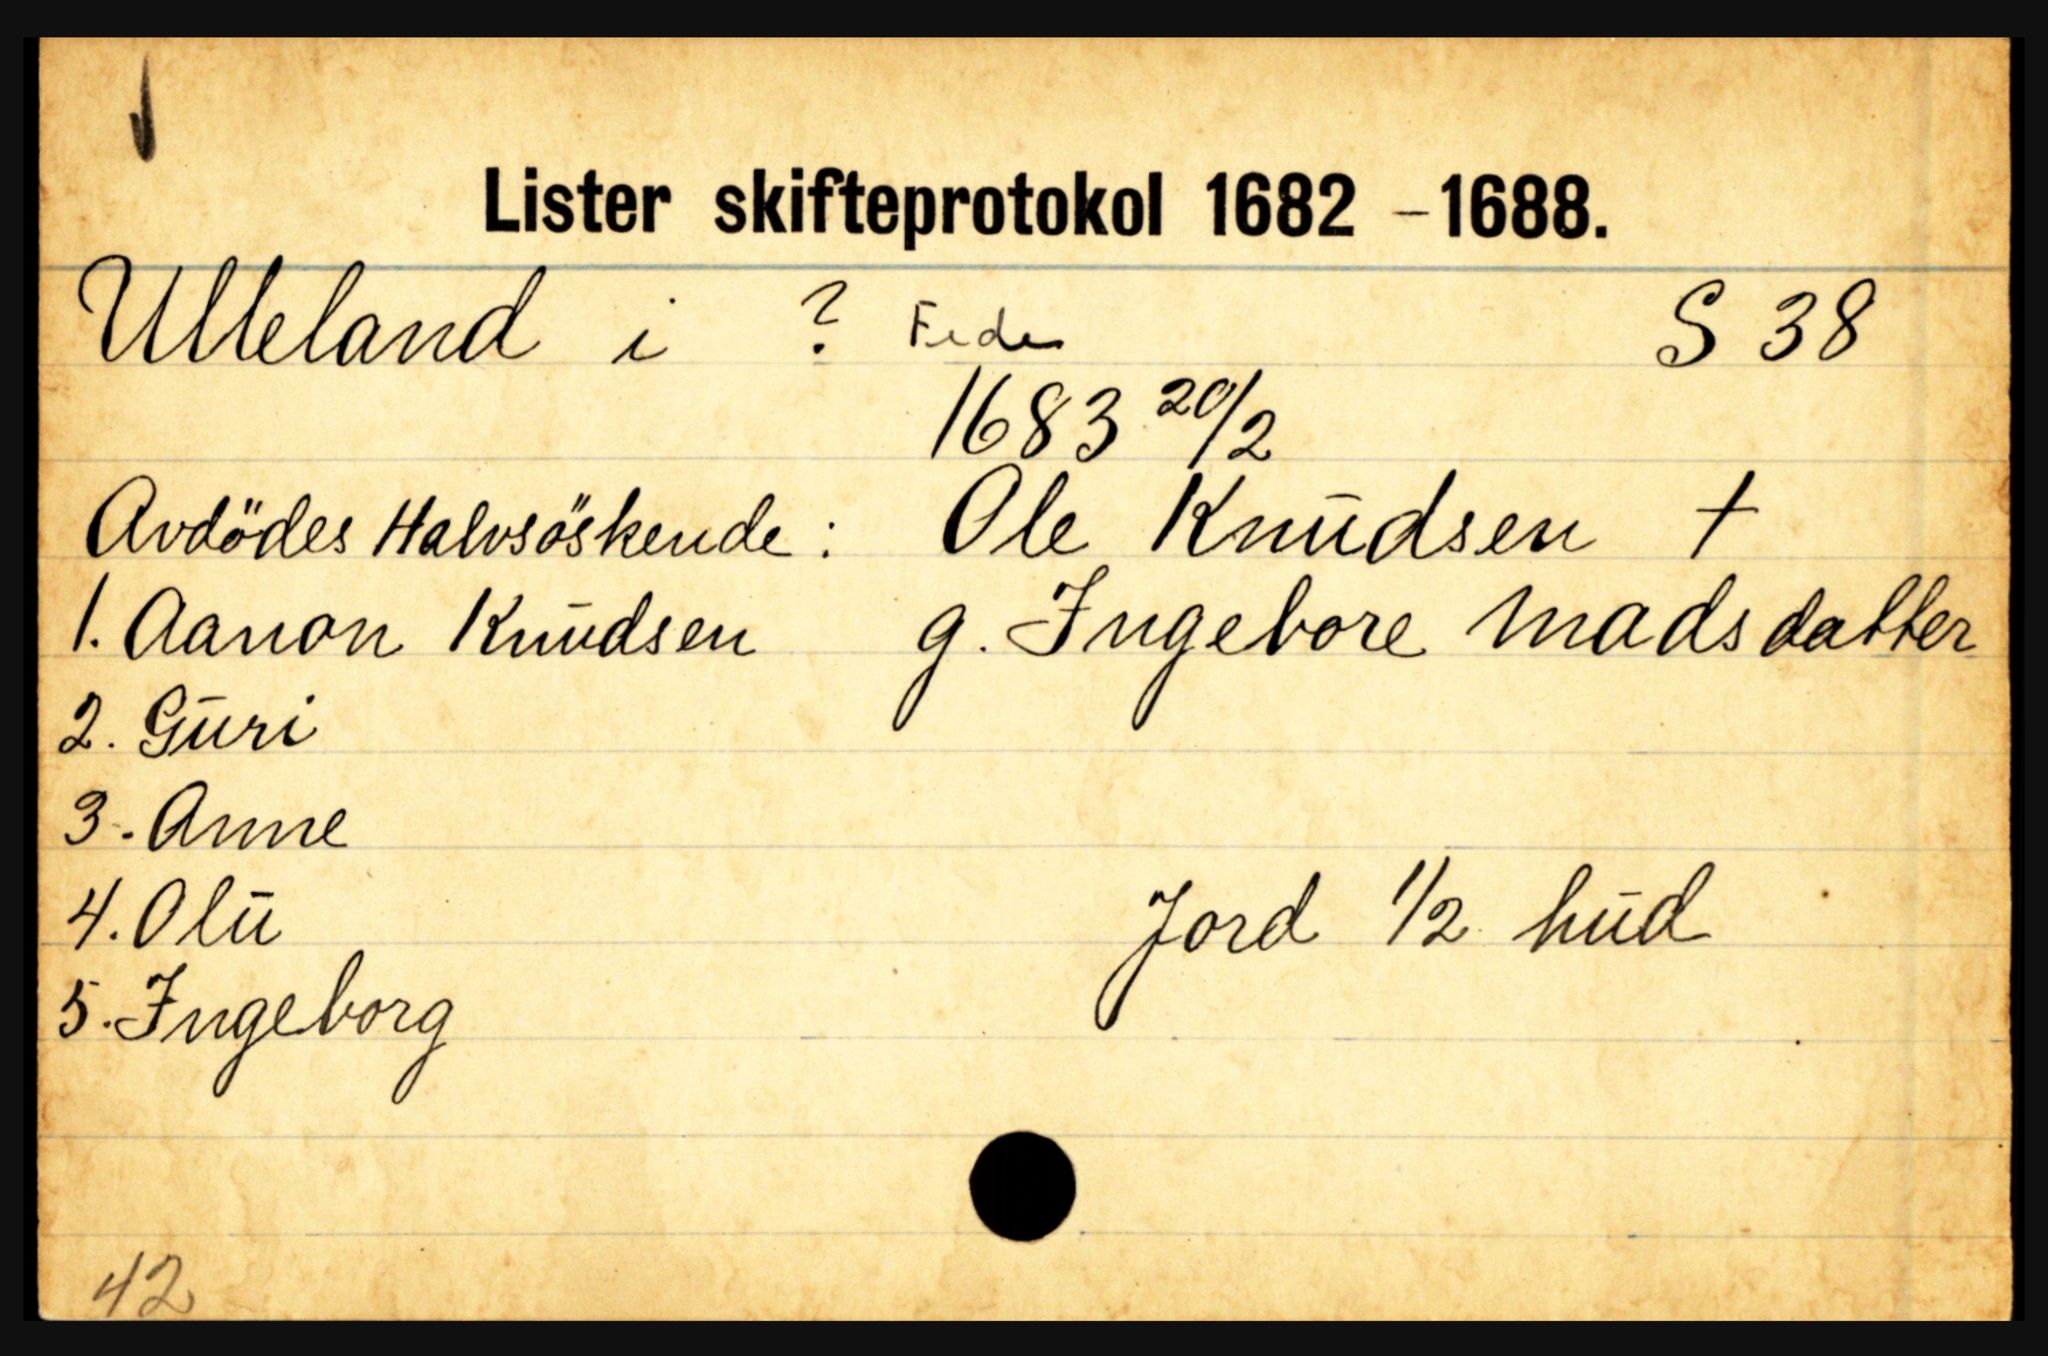 Lister skifteprotokol 1682 – 1688.
Ulleland i ? Feda S 38
1683 20/2
Avdödes Halvsöskende : Ole Knūdsen †
1. Aanon Knūdsen g. Ingebore Madsdatter
2. Gūri
3. Anne
4. Olū Jord 1/2 hūd
5. Ingeborg
42